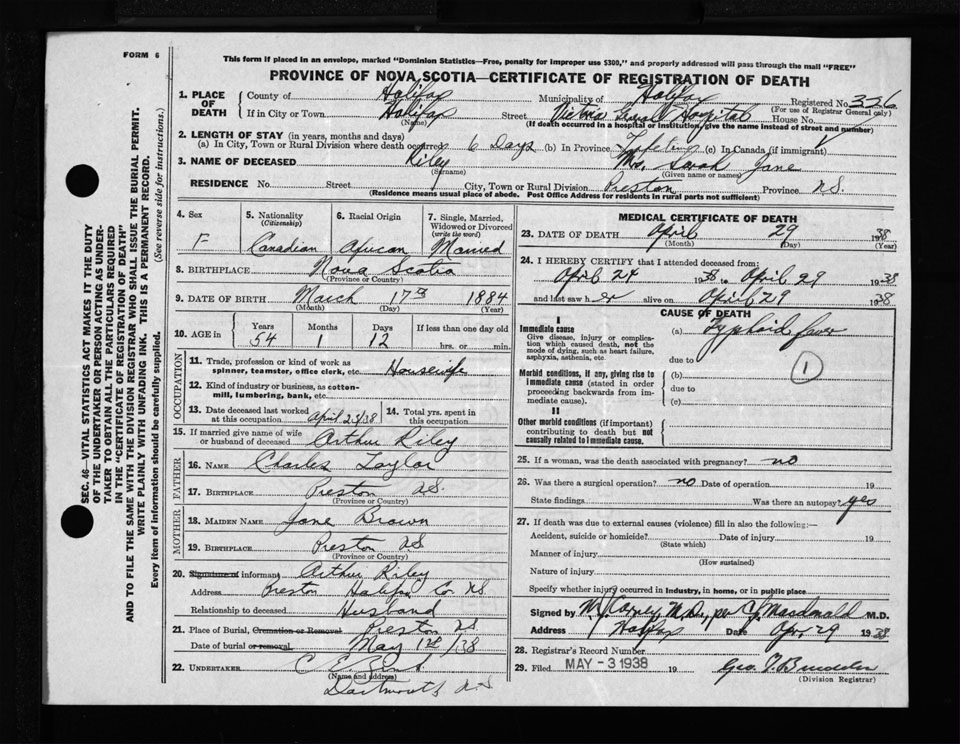 FORM 6
This form if placed in an envelope, marked "Dominion Statistics—Free, penalty for improper use $300," and properly addressed will pass through the mail "FREE"
PROVINCE OF NOVA SCOTIA—CERTIFICATE OF REGISTRATION OF DEATH
SEC. 46—VITAL STATISTICS ACT MAKES IT THE DUTY
OF THE UNDERTAKER OR PERSON ACTING AS UNDER-
TAKER TO OBTAIN ALL THE PARTICULARS REQUIRED
IN THE "CERTIFICATE OF REGISTRATION OF DEATH"
AND TO FILE THE SAME WITH THE DIVISION REGISTRAR WHO SHALL ISSUE THE BURIAL PERMIT.
WRITE PLAINLY WITH UNFADING INK. THIS IS A PERMANENT RECORD.
Every item of information should be carefully supplied. (See reverse side for instructions.)
1. PLACE OF DEATH County of Halifax Municipality of Halifax Registered No. 326
(For use of Registrar General only)
If in City or Town Halifax Street Victoria General Hospital House No.
(Name) (If death occurred in a hospital or institution, give the name instead of street and number)
2. LENGTH OF STAY (in years, months and days)
(a) In City, Town or Rural Division where death occurred 6 Days (b) In Province Lifetime (c) In Canada (if immigrant)
3. NAME OF DECEASED Riley Mrs. Sarah Jane
(Surname) (Given name or names)
RESIDENCE No. Street City, Town or Rural Division Preston Province N.S.
(Residence means usual place of abode. Post Office Address for residents in rural parts not sufficient)
4. Sex F
5. Nationality (Citizenship) Canadian
6. Racial Origin African
7. Single, Married, Widowed or Divorced (write the word) Married
8. BIRTHPLACE Nova Scotia
(Province or Country)
9. DATE OF BIRTH March 17th 1884
(Month) (Day) (Year)
10. AGE in Years 54 Months 1 Days 12 If less than one day old hrs. or min.
OCCUPATION
11. Trade, profession or kind of work as spinner, teamster, office clerk, etc. Housewife
12. Kind of industry or business, as cotton-mill, lumbering, bank, etc.
13. Date deceased last worked at this occupation April 23/38
14. Total yrs. spent in this occupation
15. If married give name of wife or husband of deceased Arthur Riley
FATHER
16. NAME Charles Taylor
17. BIRTHPLACE Preston N.S.
(Province or Country)
MOTHER
18. MAIDEN NAME Jane Brown
19. BIRTHPLACE Preston N.S.
(Province or Country)
20. Signature of informant Arthur Riley
Address Preston Halifax Co. N.S.
Relationship to deceased Husband
21. Place of Burial, Cremation or Removal Preston N.S.
Date of burial or removal May 1st /38
22. UNDERTAKER C E
(Name and address)
Dartmouth N.S.
MEDICAL CERTIFICATE OF DEATH
23. DATE OF DEATH April 29 1938
(Month) (Day) (Year)
24. I HEREBY CERTIFY that I attended deceased from:
April 24 1938 to April 29 1938
and last saw her alive on April 29 1938
CAUSE OF DEATH
I
Immediate cause
Give disease, injury or complication which caused death, not the mode of dying, such as heart failure, asphyxia, asthenia, etc.
(a) Typhoid fever
due to
Morbid conditions, if any, giving rise to immediate cause (stated in order proceeding backwards from immediate cause).
(b)
due to
(c)
1
II
Other morbid conditions (if important) contributing to death but not causally related to immediate cause.
25. If a woman, was the death associated with pregnancy? no
26. Was there a surgical operation? no Date of operation 19
State findings Was there an autopsy? yes
27. If death was due to external causes (violence) fill in also the following:—
Accident, suicide or homicide? Date of injury 19
(State which)
Manner of injury
(How sustained)
Nature of injury
Specify whether injury occurred in Industry, in home, or in public place
Signed by per C. J. Macdonald M.D.
Address Halifax Date Apr 29 1938
28. Registrar's Record Number
29. Filed MAY - 3 1938 19
(Division Registrar)